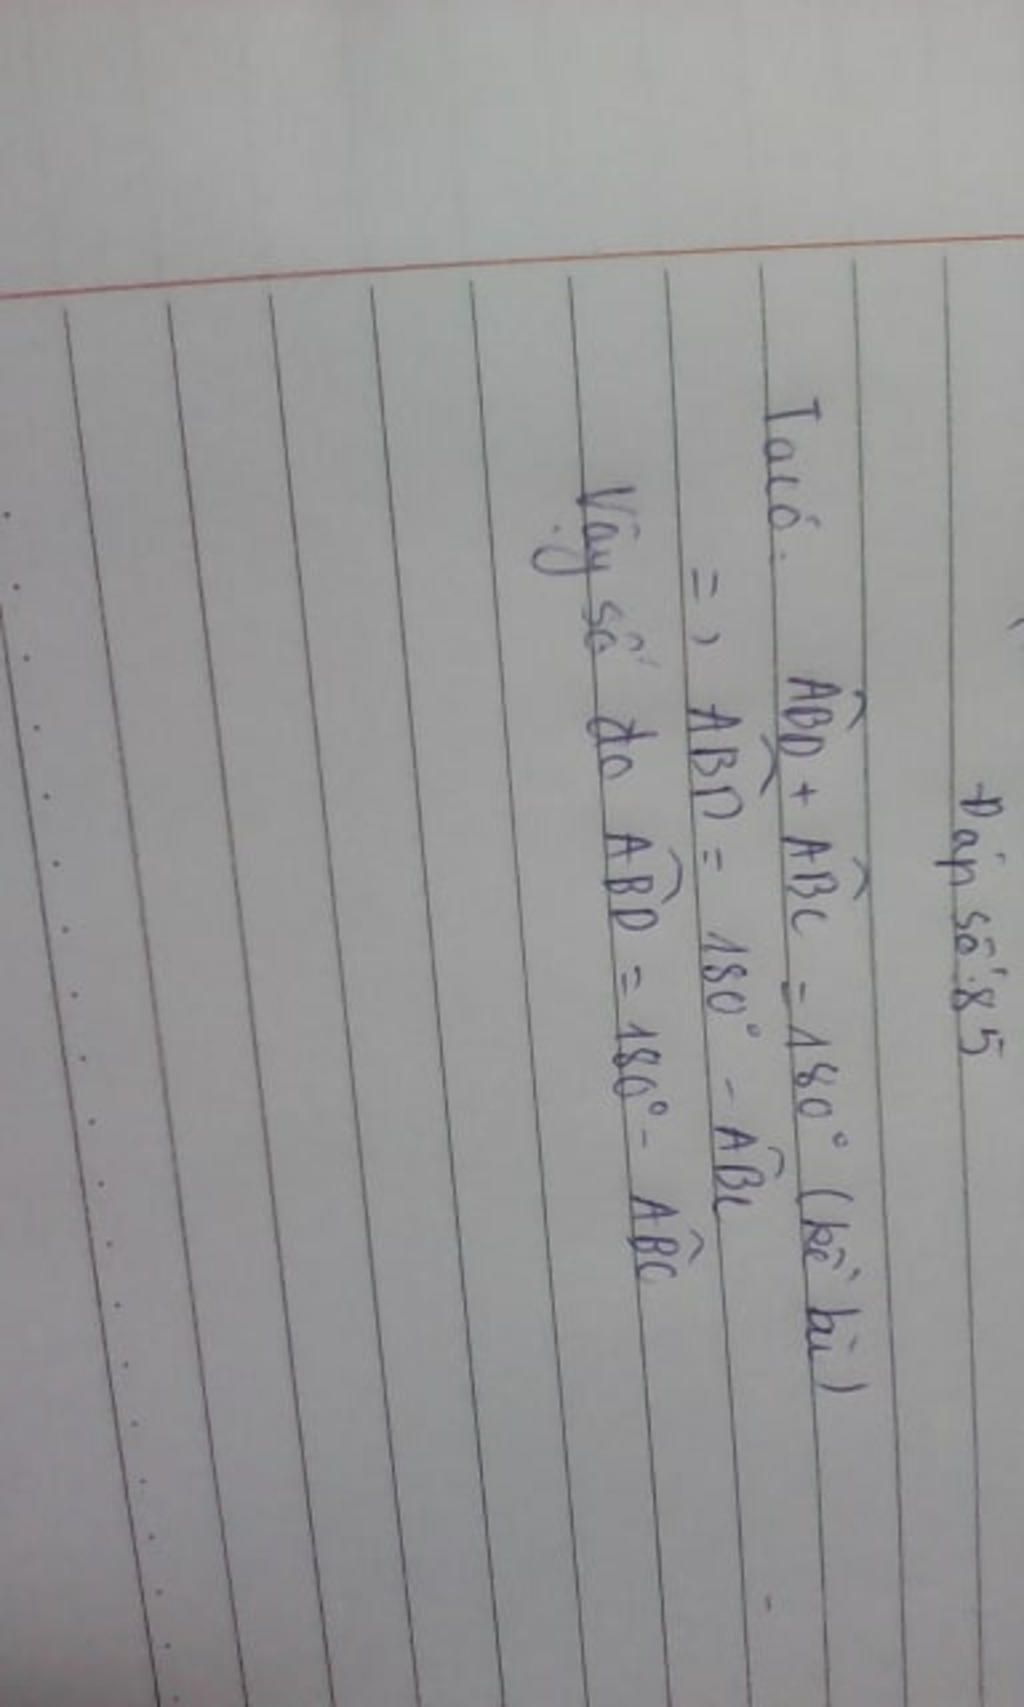 Đáp số: 85
Ta có: ABD̂ + ABĈ = 180° (kề bù)
=> ABD̂ = 180° - ABĈ
Vậy số đo ABD̂ = 180° - ABĈ